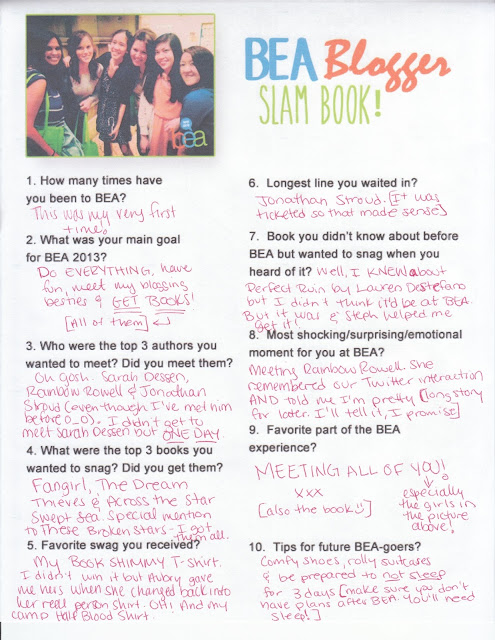 BEA Blogger
SLAM BOOK!
bea
1. How many times have
you been to BEA?
This was my very first
time.
2. What was your main goal
for BEA 2013?
Do EVERYTHING, have
fun, meet my blogging
besties & GET BOOKS!
[All of them]
3. Who were the top 3 authors you
wanted to meet? Did you meet them?
Oh gosh. Sarah Dessen,
Rainbow Rowell & Jonathan
Stroud (even though I've met him
before O_O). I didn't get to
meet Sarah Dessen but ONE DAY.
4. What were the top 3 books you
wanted to snag? Did you get them?
Fangirl, The Dream
Thieves & Across the Star
Swept Sea. Special mention
to These Broken Stars - I got
them all.
5. Favorite swag you received?
My BOOK SHIMMY T-Shirt.
I didn't win it but Audry gave
me hers when she changed back into
her real person shirt. OH! And my
camp Half Blood Shirt.
6. Longest line you waited in?
Jonathan Stroud. [It was
ticketed so that made sense]
7. Book you didn't know about before
BEA but wanted to snag when you
heard of it? Well, I KNEW about
Perfect Ruin by Lauren DeStefano
but I didn't think it'd be at BEA.
But it was & Steph helped me
get it!
8. Most shocking/surprising/emotional
moment for you at BEA?
Meeting Rainbow Rowell. She
remembered our Twitter interaction
AND told me I'm pretty [long story
for later. I'll tell it, I promise]
9. Favorite part of the BEA
experience?
MEETING ALL OF YOU!
xxx
[also the books :)]
especially
the girls in
the picture
above!
10. Tips for future BEA-goers?
Comfy shoes, rolly suitcases
& be prepared to not sleep
for 3 days [make sure you don't
have plans after BEA. You'll need
sleep!]